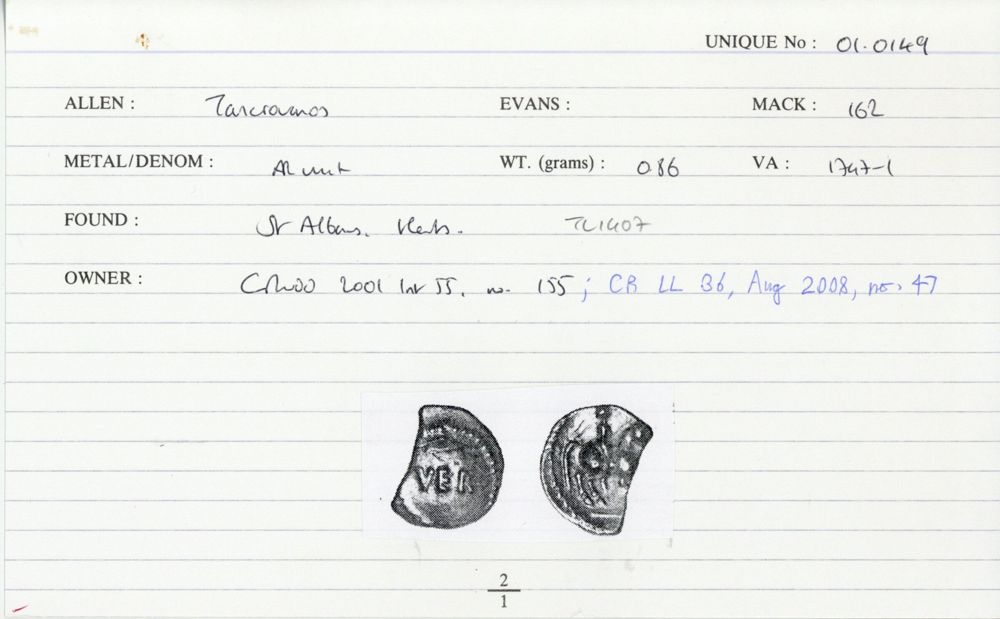 UNIQUE No : 01.0149
ALLEN : Tasciovanos EVANS : MACK : 162
METAL/DENOM : AR unit WT. (grams) : 0.86 VA : 1747-1
FOUND : St Albans. Herts. TL1407
OWNER : 2001 55. no. 155 ; CR LL 36, Aug 2008, no. 47
VER
2
1